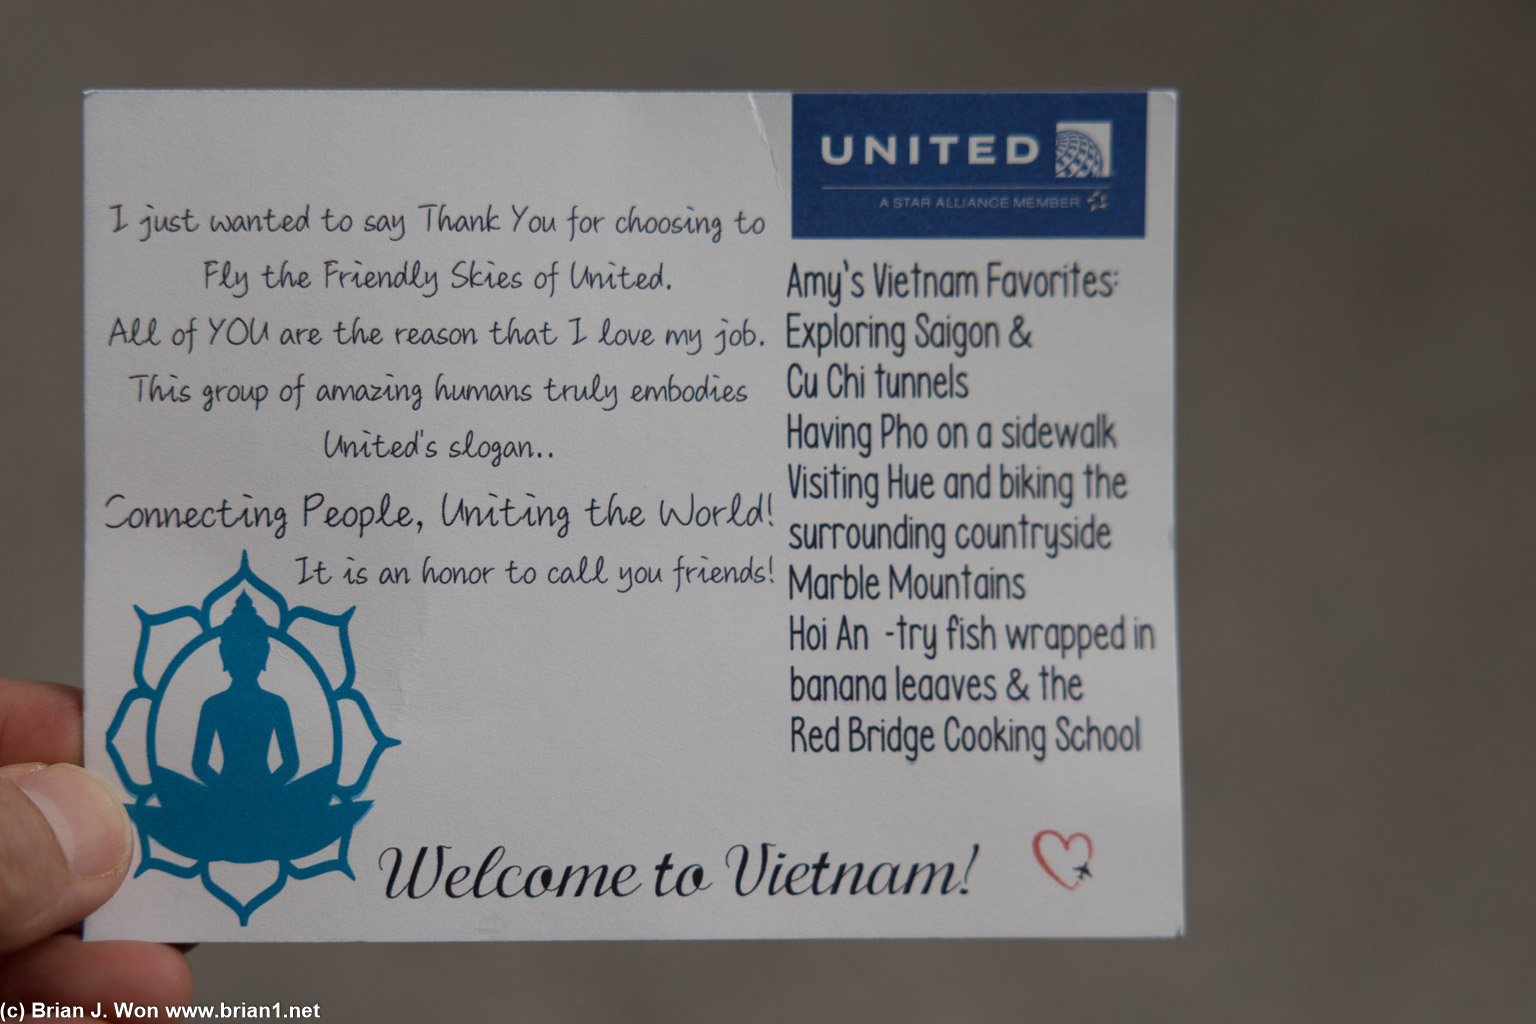 I just wanted to say Thank You for choosing to
Fly the Friendly Skies of United.
All of YOU are the reason that I love my job.
This group of amazing humans truly embodies
United's slogan..
Connecting People, Uniting the World!
It is an honor to call you friends!
UNITED
A STAR ALLIANCE MEMBER
Amy's Vietnam Favorites:
Exploring Saigon &
Cu Chi tunnels
Having Pho on a sidewalk
Visiting Hue and biking the
surrounding countryside
Marble Mountains
Hoi An -try fish wrapped in
banana leaaves & the
Red Bridge Cooking School
Welcome to Vietnam!
(c) Brian J. Won www.brian1.net